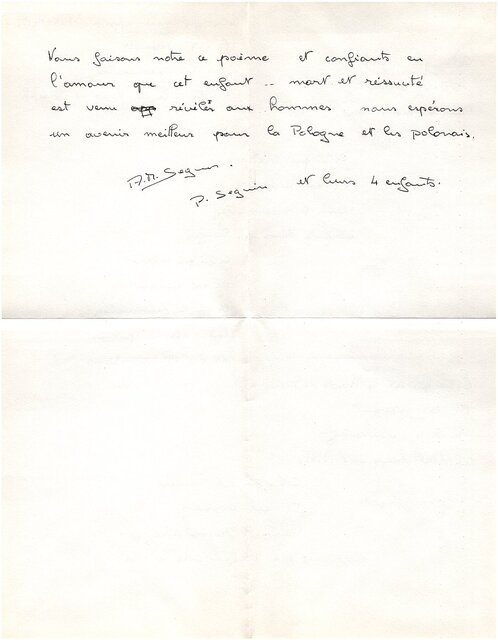 Nous faisons notre ce poème et confiants en
l'amour que cet enfant .. mort et réssucité
est venu révéler aux hommes nous espérons
un avenir meilleur pour la Pologne et les polonais.
A.M. Seguin.
P. Seguin et leurs 4 enfants.